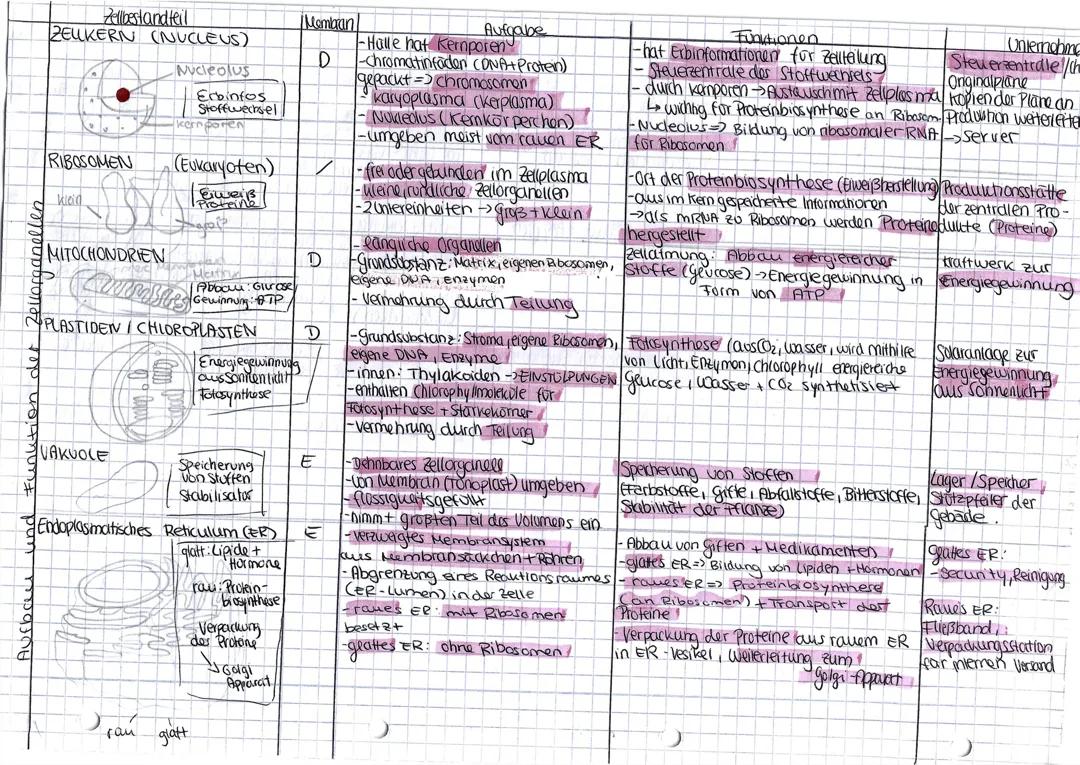 Aufbau und Funktion der Zellorganellen
Zellbestandteil
Membran
Aufgabe
Funktionen
Unternehme
ZELLKERN (NUCLEUS)
D
Nucleolus
Erbinfos
Stoffwechsel
Kernporen
- Hülle hat Kernporen
- chromatinfäden (DNA+Protein)
gepackt => chromosomen
- Karyoplasma (Kerplasma)
- Nucleolus (Kernkörperchen)
- umgeben meist vom rauen ER
- hat Erbinformationen für Zellteilung
- Steuerzentrale des Stoffwechsels
- durch Kernporen → Austausch mit Zellplasma
↳ wichtig für Proteinbiosynthese an Ribosom
- Nucleolus => Bildung von ribosomaler RNA
für Ribosomen
Steuerzentrale /Ch
Originalpläne
Kopien der Pläne an
Produktion weiterleiten
→ Server
RIBOSOMEN (Eukaryoten)
/
klein
Eiweiß
Proteine
groß
- frei oder gebunden im Zellplasma
- kleine, rundliche Zellorganellen
- 2 Untereinheiten → groß + klein
- Ort der Proteinbiosynthese (Eiweißherstellung)
- aus im Kern gespeicherte Informationen
→ als mRNA zu Ribosomen werden Proteine
hergestellt
Produktionsstätte
der zentralen Pro-
dukte (Proteine)
MITOCHONDRIEN
D
Matrix
Abbau: Glucose
Gewinnung: ATP
- längliche Organellen
- Grundsubstanz: Matrix, eigenen Ribosomen,
eigene DNA, enzymen
- Vermehrung durch Teilung
Zellatmung: Abbau energiereicher
Stoffe (Glucose) → Energiegewinnung in
Form von ATP
Kraftwerk zur
Energiegewinnung
PLASTIDEN / CHLOROPLASTEN
D
Energiegewinnung
aus Sonnenlicht
Fotosynthese
- Grundsubstanz: Stroma, eigene Ribosomen,
eigene DNA, Enzyme
- innen: Thylakoiden → EINSTÜLPUNGEN
- enthalten Chlorophyllmoleküle für
Fotosynthese + Stärkekörner
- Vermehrung durch Teilung
Fotosynthese (aus CO2, Wasser, wird mithilfe
von Licht, Enzymen, Chlorophyll energiereiche
Glucose, Wasser + CO2 synthetisiert
Solaranlage zur
Energiegewinnung
aus Sonnenlicht
VAKUOLE
E
Speicherung
von Stoffen
Stabilisator
- Dehnbares Zellorganell
- von Membran (Tonoplast) umgeben
- flüssigkeitsgefüllt
- nimmt größten Teil des Volumens ein
Speicherung von Stoffen
(Farbstoffe, Gifte, Abfallstoffe, Bitterstoffe,
Stabilität der Pflanze)
Lager / Speicher
Stützpfeiler der
Gebäude.
Endoplasmatisches Reticulum (ER)
E
glatt: Lipide +
Hormone
rau: Protein-
biosynthese
Verpackung
der Proteine
↘ Golgi
Apparat
rau glatt
- verzweigtes Membransystem
aus Membransäckchen + Röhren
- Abgrenzung eines Reaktionsraumes
(ER-Lumen) in der Zelle
- raues ER: mit Ribosomen
besetzt
- glattes ER: ohne Ribosomen
- Abbau von Giften + Medikamenten
- glattes ER => Bildung von Lipiden + Hormonen
- raues ER => Proteinbiosynthese
(an Ribosomen) + Transport der
Proteine
- Verpackung der Proteine aus rauem ER
in ER-Vesikel, Weiterleitung zum
Golgi-Apparat
glattes ER:
- Security, Reinigung
Raues ER:
Fließband,
Verpackungsstation
für internen Versand